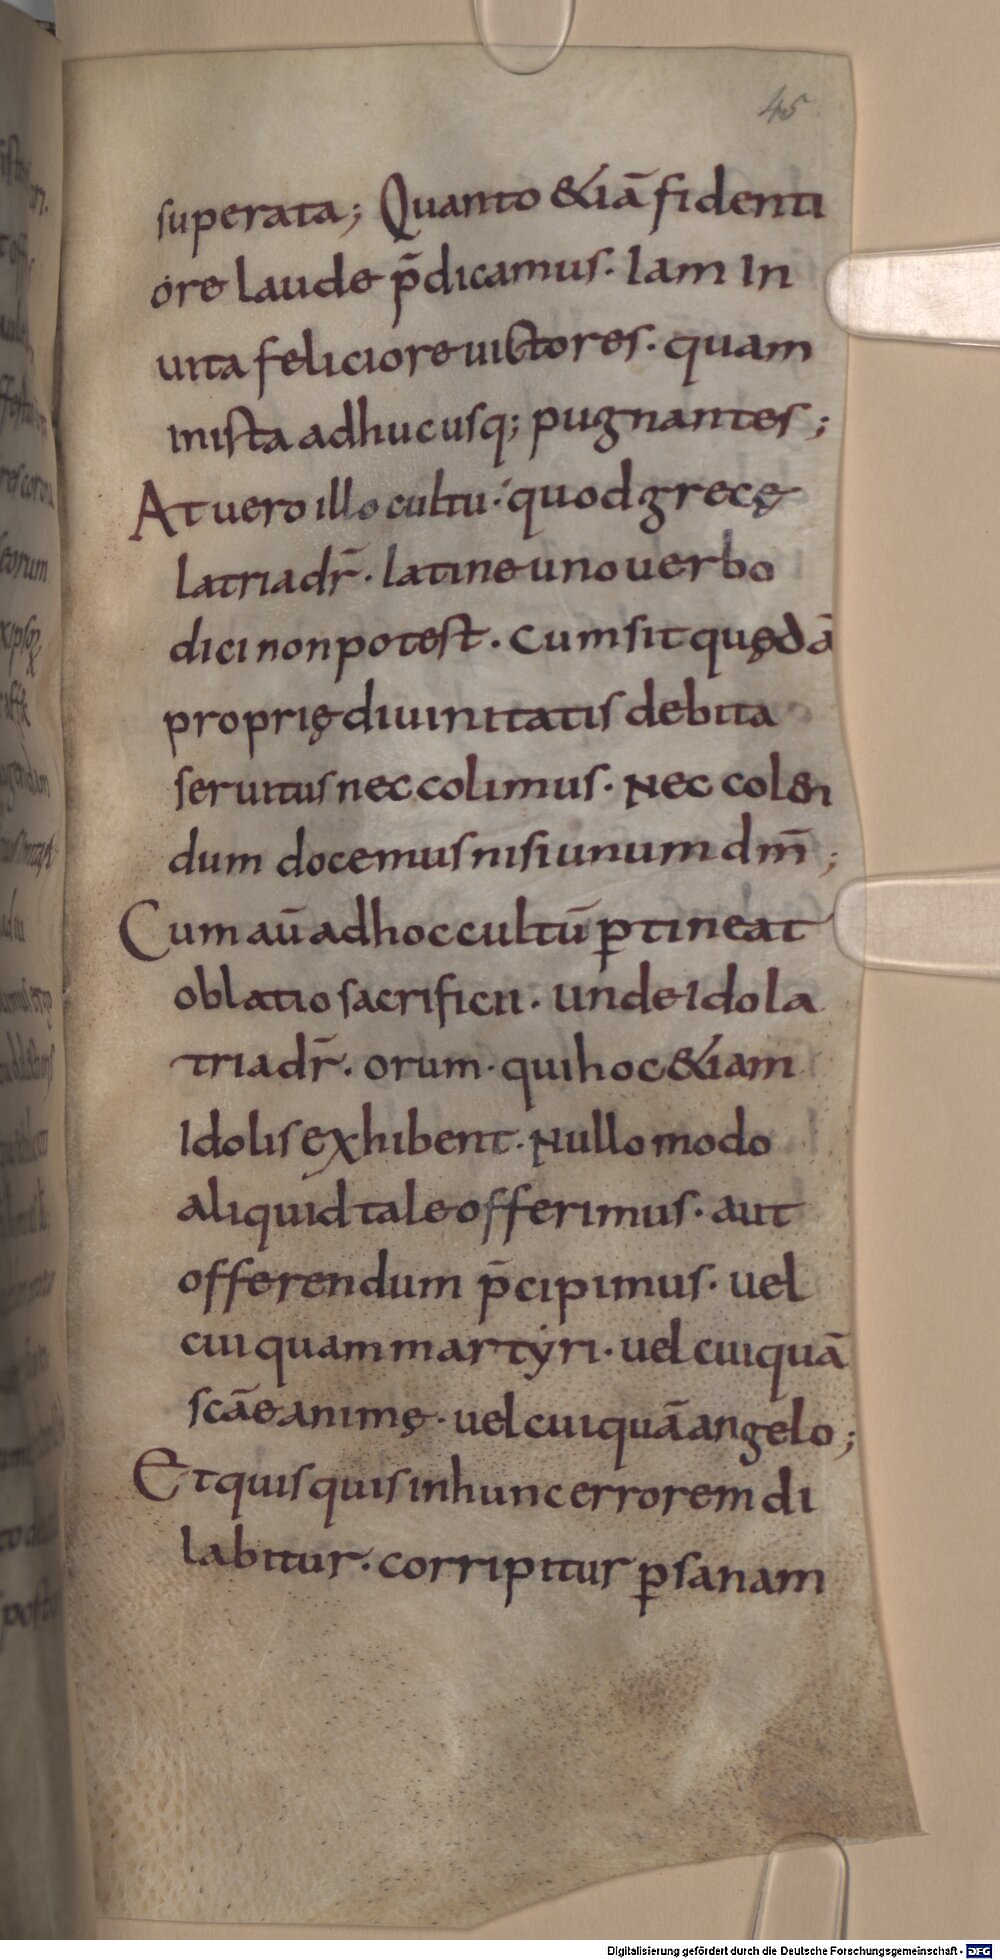 45
superata; Quanto &iā fidenti
ore laude p̄dicamus. Iam In
uita feliciore uictores. quam
inista adhuc usq; pugnantes;
At uero illo cultu. quod grecę
latria dr̄. latine uno uerbo
dici non potest. cum sit quędā
proprię diuinitatis debita
seruitus nec colimus. Nec colen
dum docemus nisi unum dm̄;
Cum aū ad hoc cultū ꝑtineat
oblatio sacrificii. unde Idola
tria dr̄. orum. qui hoc &iam
Idolis exhibent. Nullo modo
aliquid tale offerimus. aut
offerendum p̄cipimus. uel
cuiquam martyri. uel cuiquā
scāe animę. uel cuiquā angelo;
Et quisquis in hunc errorem di
labitur. corripitur ꝑ sanam
Digitalisierung gefördert durch die Deutsche Forschungsgemeinschaft - DFG